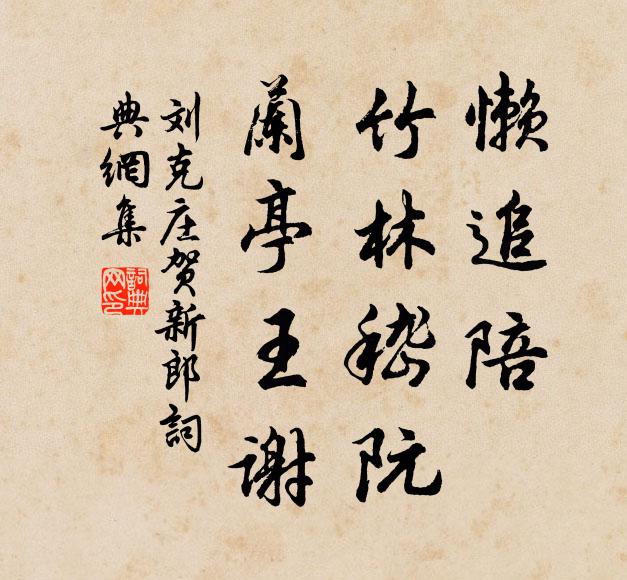 懒追陪
竹林嵇阮
蘭亭王谢
刘克庄贺新郎詞
典網集
詞典网印